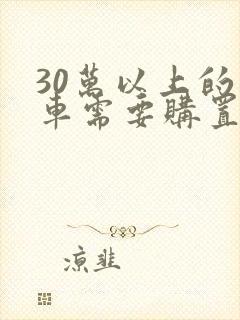 30萬以上的
車需要購置
涼韭